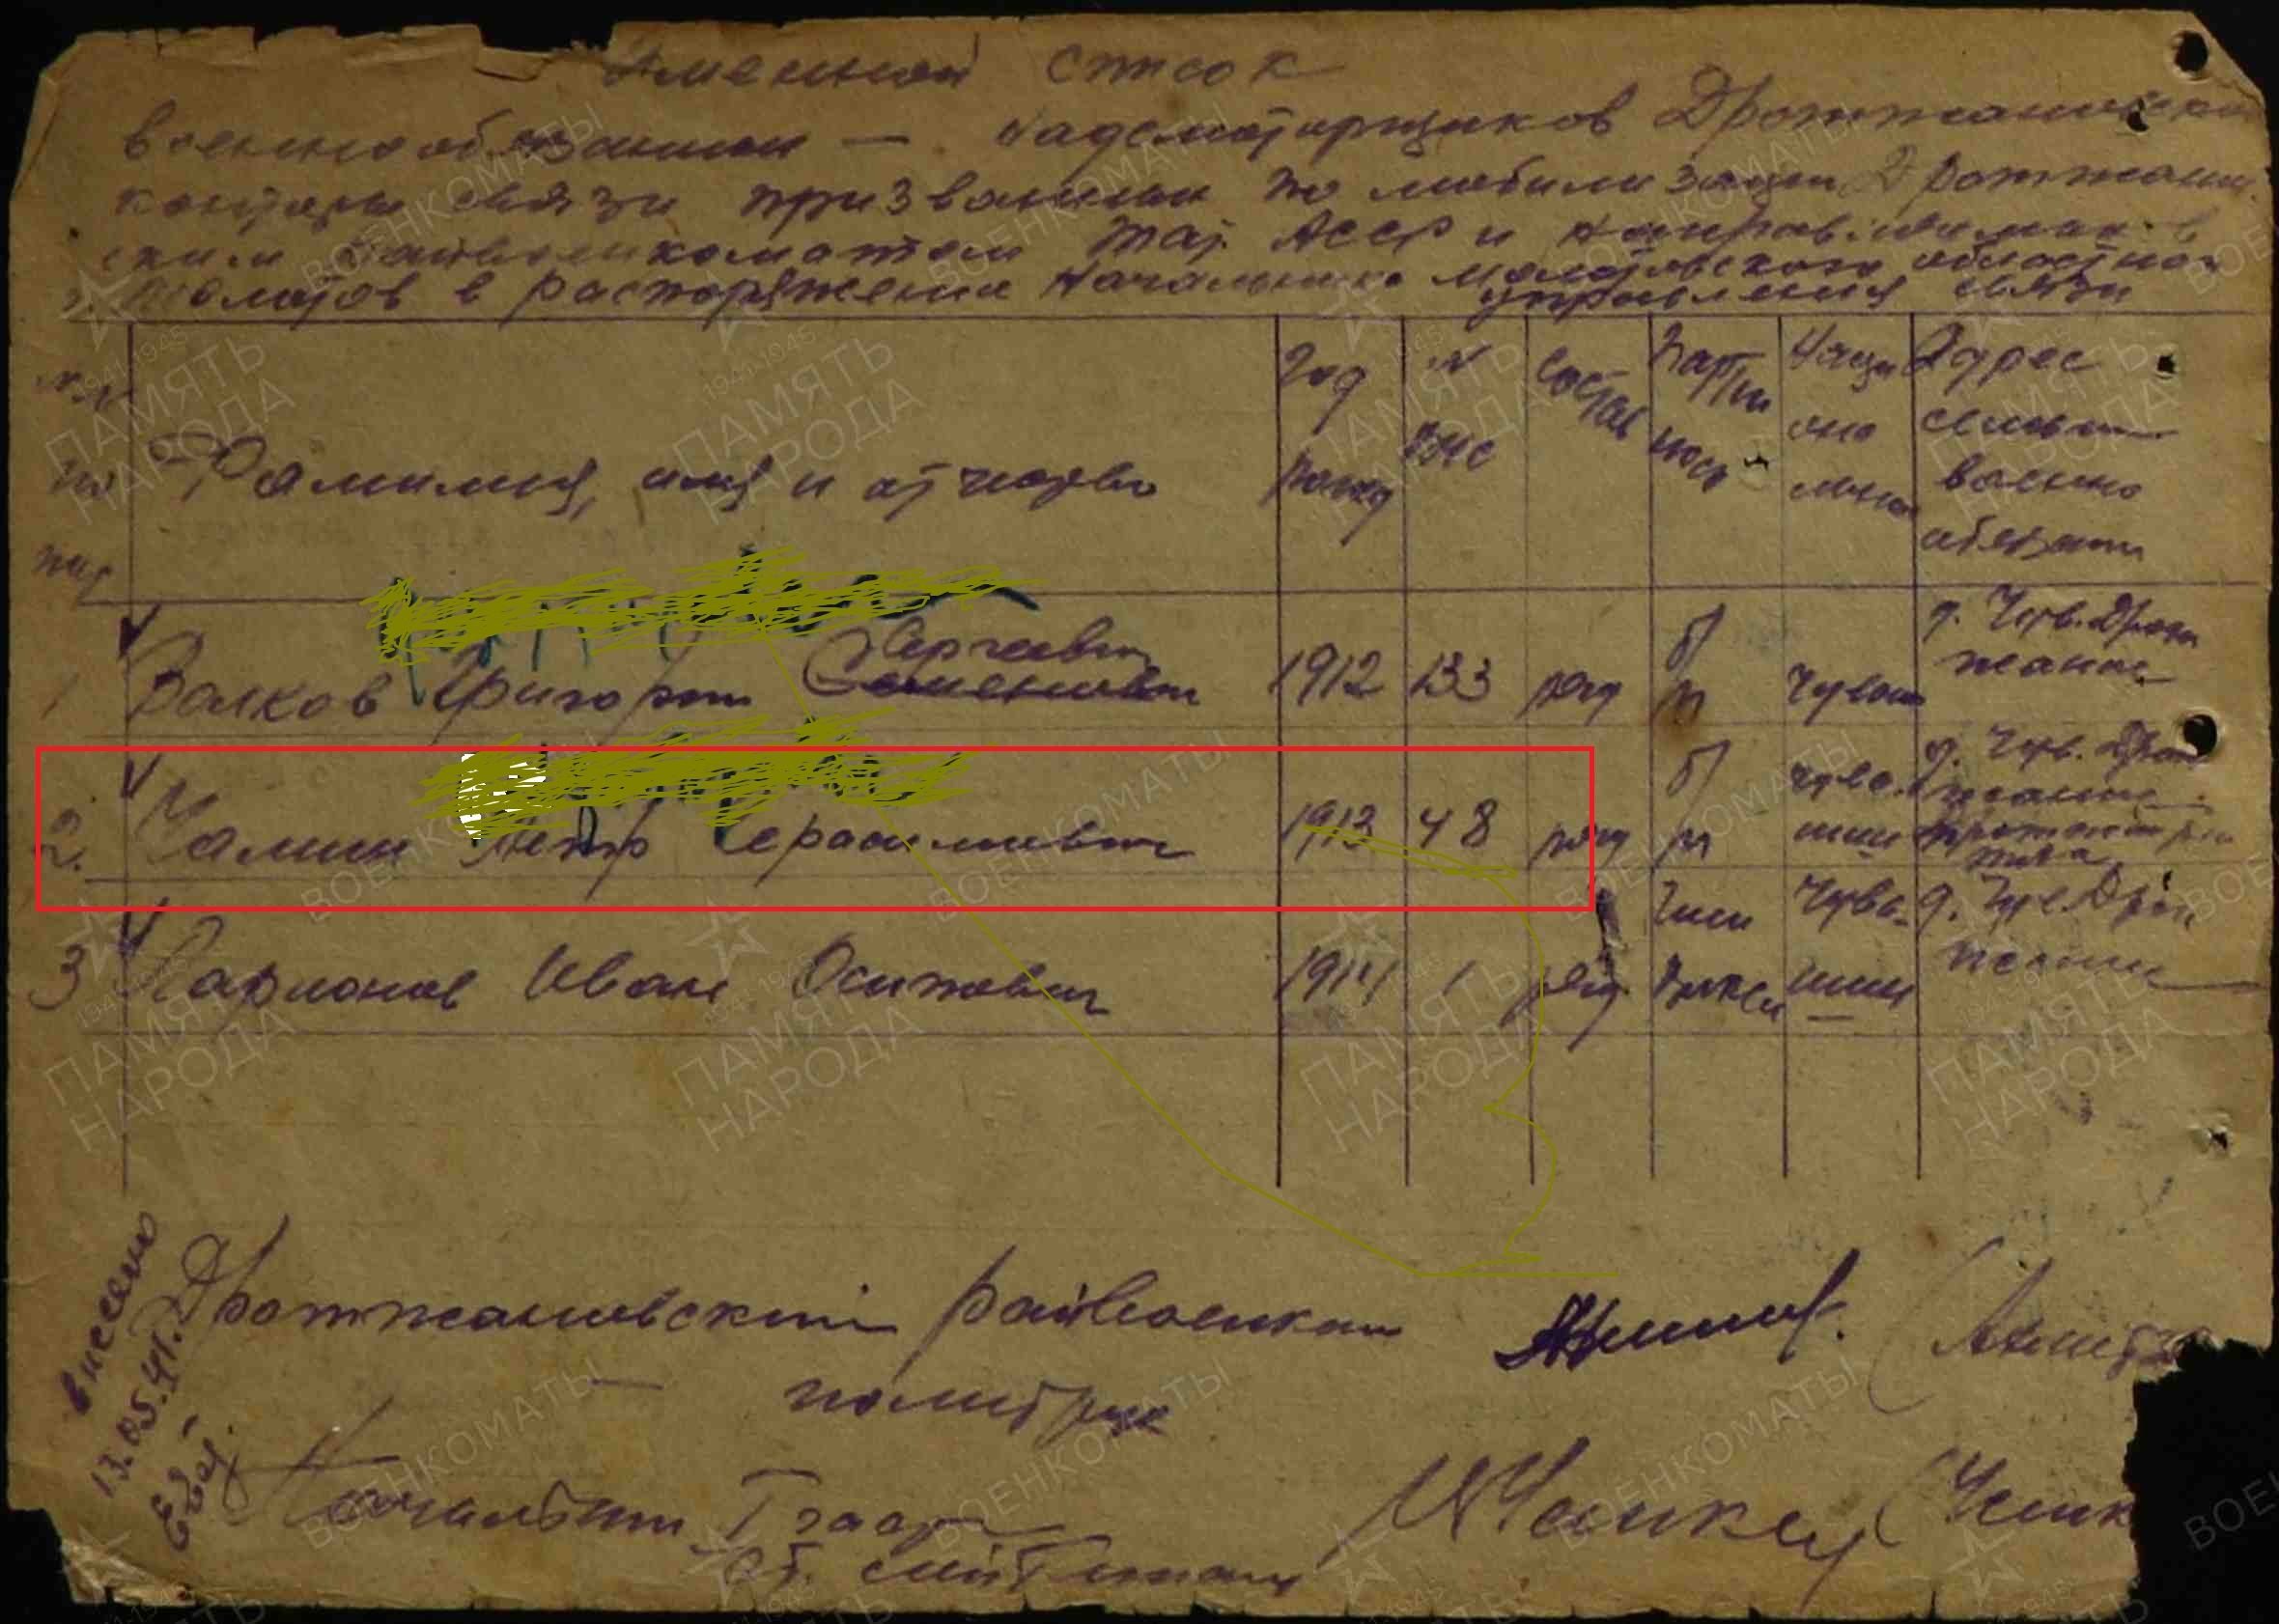 Именной список
военнообязанных — надсмотрщиков Дрожжановской
конторы связи призванных по мобилизации Дрожжанов
ским райвоенкоматом Тат. АССР и направленных в
г. Молотов в распоряжение Начальника Молотовского областного
управления связи
№№ по пор
Фамилия, имя и отчество
Год рожд
№ ВУС
Состав
Партий ность
Наци она льно
Адрес семьи военно обязанн
1 Волков Григорий Сергеевич Семенович 1912 133 ряд б/п чуваш д. Чув. Дрож жаное
2. Чамин Петр Герасимович 1913 48 ряд б/п чува шин д. Чув. Дрож жаное
3 Ларионов Иван Осипович 1914 1 ряд Член чува шин д. Чув. Дрож жаное
внесено
13.05.41.
Дрожжановский райвоенком
— политрук
Начальник
ст. лейтенант
ВОЕНКОМАТЫ
1941-1945
ПАМЯТЬ
НАРОДА